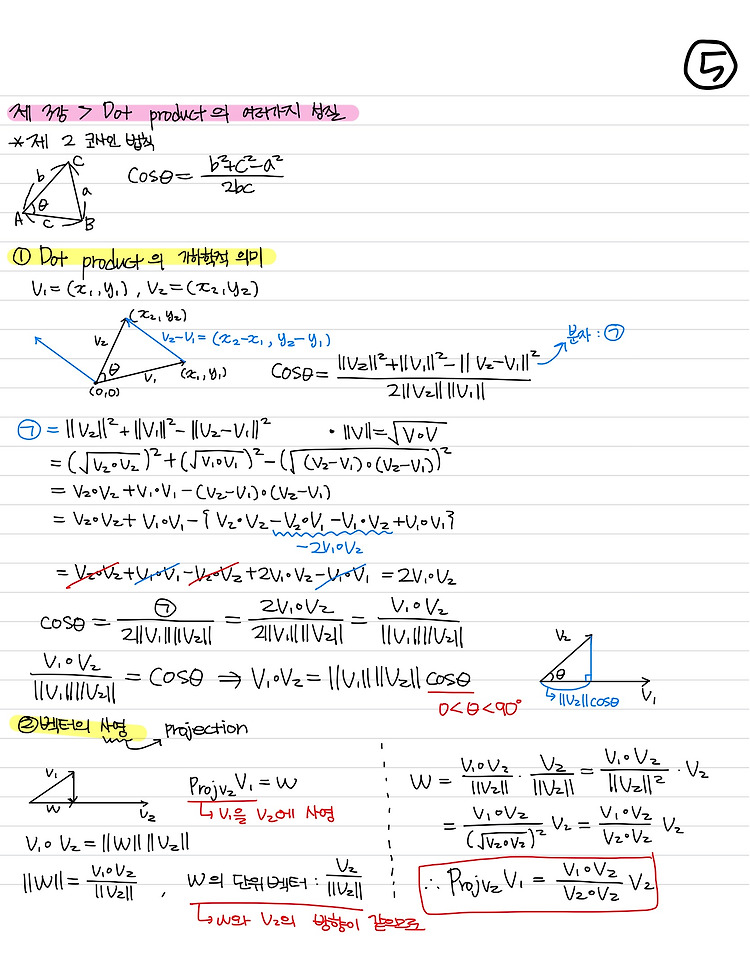 ⑤
제 3장 > Dot product의 여러가지 성질
*제 2 코사인 법칙
C
b
a
θ
A
c
B
cosθ = (b²+c²-a²)/2bc
① Dot product의 기하학적 의미
V₁=(x₁,y₁), V₂=(x₂,y₂)
(x₂,y₂)
V₂
V₂-V₁=(x₂-x₁, y₂-y₁)
θ
V₁
(x₁,y₁)
(0,0)
cosθ = (||V₂||²+||V₁||²-||V₂-V₁||²)/(2||V₂|| ||V₁||)
분자 : ㉠
㉠ = ||V₂||²+||V₁||²-||V₂-V₁||²
• ||V||=√(V∘V)
= (√(V₂∘V₂))²+(√(V₁∘V₁))²-(√((V₂-V₁)∘(V₂-V₁)))²
= V₂∘V₂+V₁∘V₁-(V₂-V₁)∘(V₂-V₁)
= V₂∘V₂+V₁∘V₁-{V₂∘V₂-V₂∘V₁-V₁∘V₂+V₁∘V₁}
-2V₁∘V₂
= V₂∘V₂+V₁∘V₁-V₂∘V₂+2V₁∘V₂-V₁∘V₁ = 2V₁∘V₂
cosθ = ㉠/(2||V₁|| ||V₂||) = 2V₁∘V₂/(2||V₁|| ||V₂||) = V₁∘V₂/(||V₁|| ||V₂||)
V₁∘V₂/(||V₁|| ||V₂||) = cosθ ⇒ V₁∘V₂ = ||V₁|| ||V₂|| cosθ
0<θ<90°
V₂
θ
V₁
↳||V₂||cosθ
② 벡터의 사영 → projection
V₁
W
V₂
Proj_V₂ V₁ = W
↳ V₁을 V₂에 사영
V₁∘V₂ = ||W|| ||V₂||
||W|| = V₁∘V₂/||V₂|| , W의 단위벡터 : V₂/||V₂||
↳ W와 V₂의 방향이 같으므로
W = V₁∘V₂/||V₂|| · V₂/||V₂|| = V₁∘V₂/||V₂||² · V₂
= V₁∘V₂/(√(V₂∘V₂))² V₂ = V₁∘V₂/V₂∘V₂ V₂
∴ Proj_V₂ V₁ = V₁∘V₂/V₂∘V₂ V₂